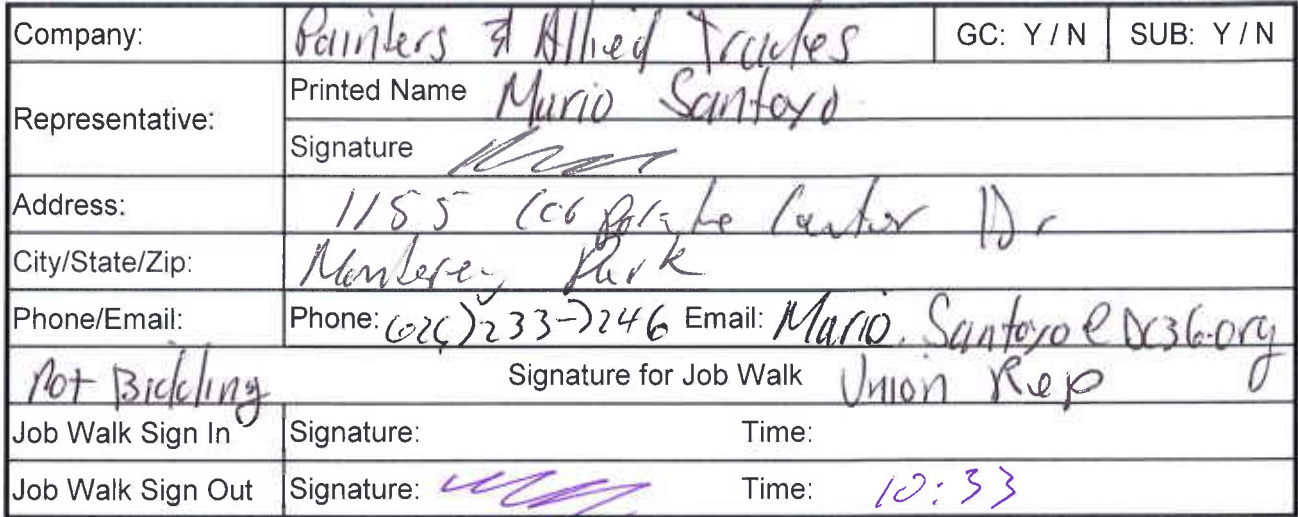 Company: Painters & Allied Trades GC: Y / N SUB: Y / N
Representative:
Printed Name Mario Santoyo
Signature
Address: 1155 Corporate Center Dr
City/State/Zip: Monterey Park
Phone/Email: Phone: (626)233-7246 Email: Mario.Santoyo@DC36.org
Not Bidding Signature for Job Walk Union Rep
Job Walk Sign In Signature: Time:
Job Walk Sign Out Signature: Time: 10:33